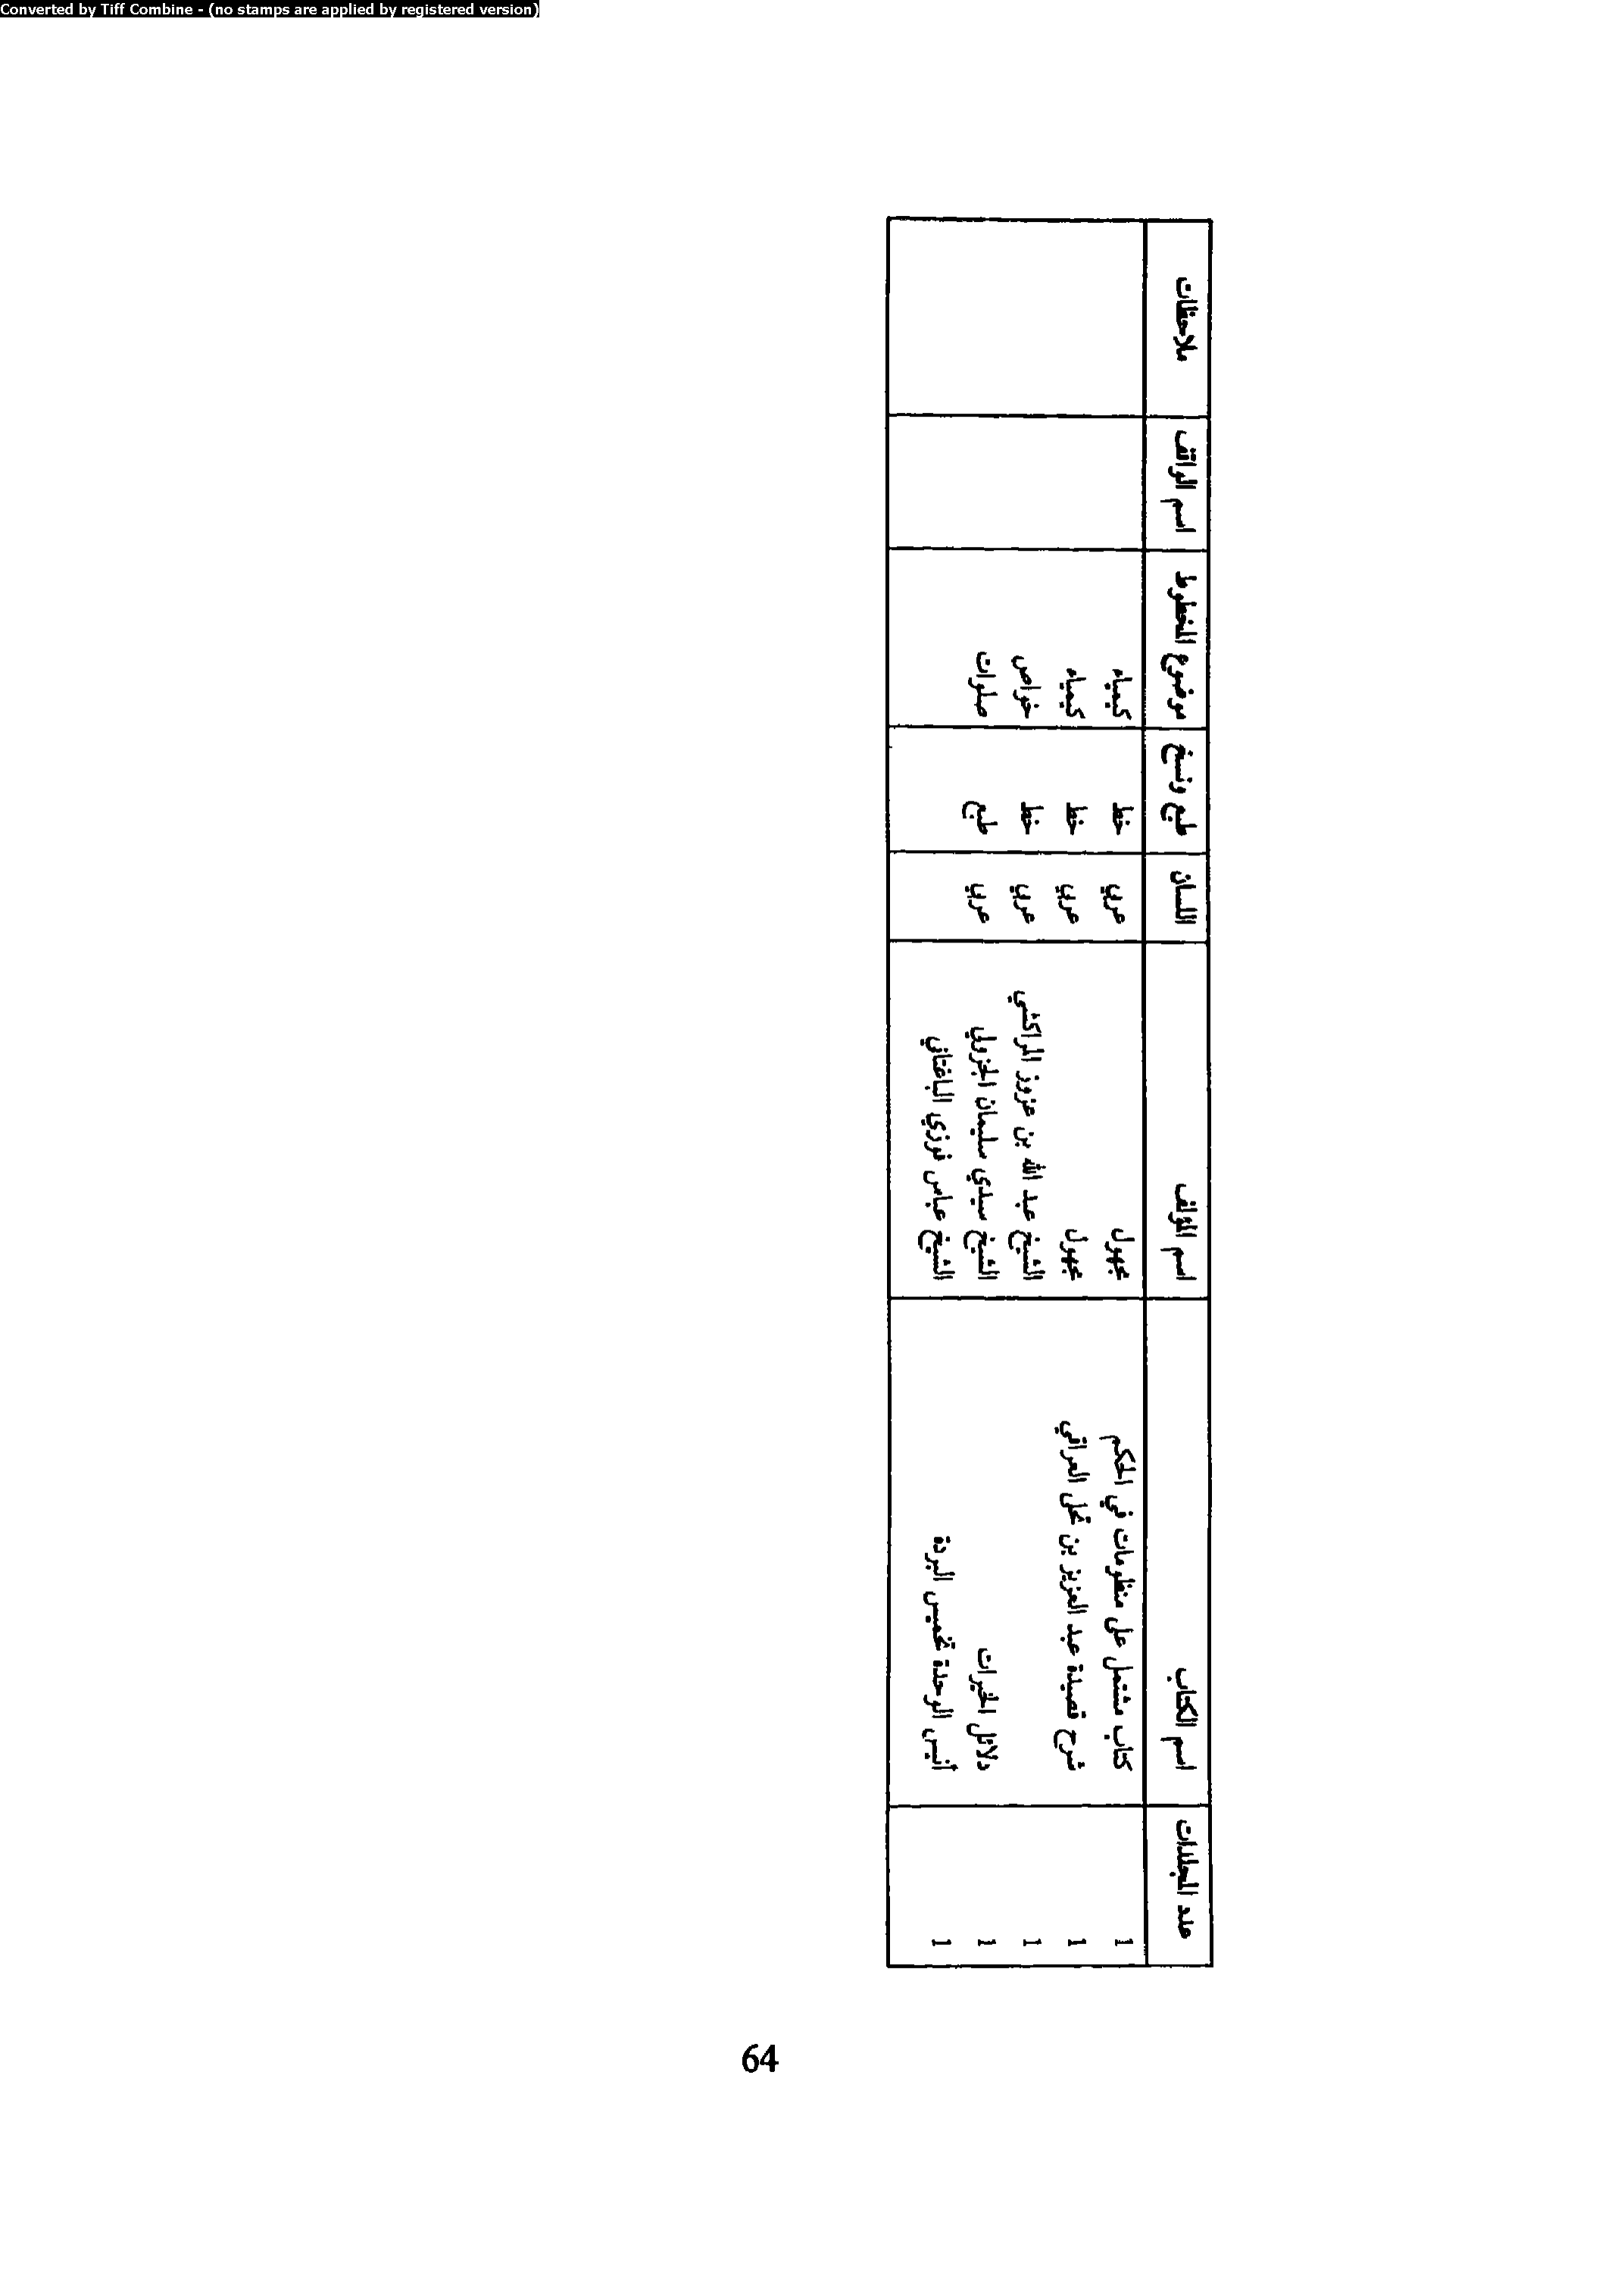 Converted by Tiff Combine - (no stamps are applied by registered version)
عدد المجلدات اسم الكتاب اسم المؤلف اللسان طبع ونسخ موضوع المخطوط اسم الواقف ملاحظات
1 كتاب مشتمل على منظومات في الحكم مجهول عربي خط كيمياء
1 شرح قصيدة عبد العزيز بن تمل العراقي مجهول عربي خط كيمياء
1 الشيخ عبد الله بن عزوز المراكشي عربي خط خواص
1 دلائل الخيرات الشيخ سيدي سليمان الجزولي عربي طبع صلوات
1 أنيس الوحدة تخميس البردة الشيخ عباس فوزي
64